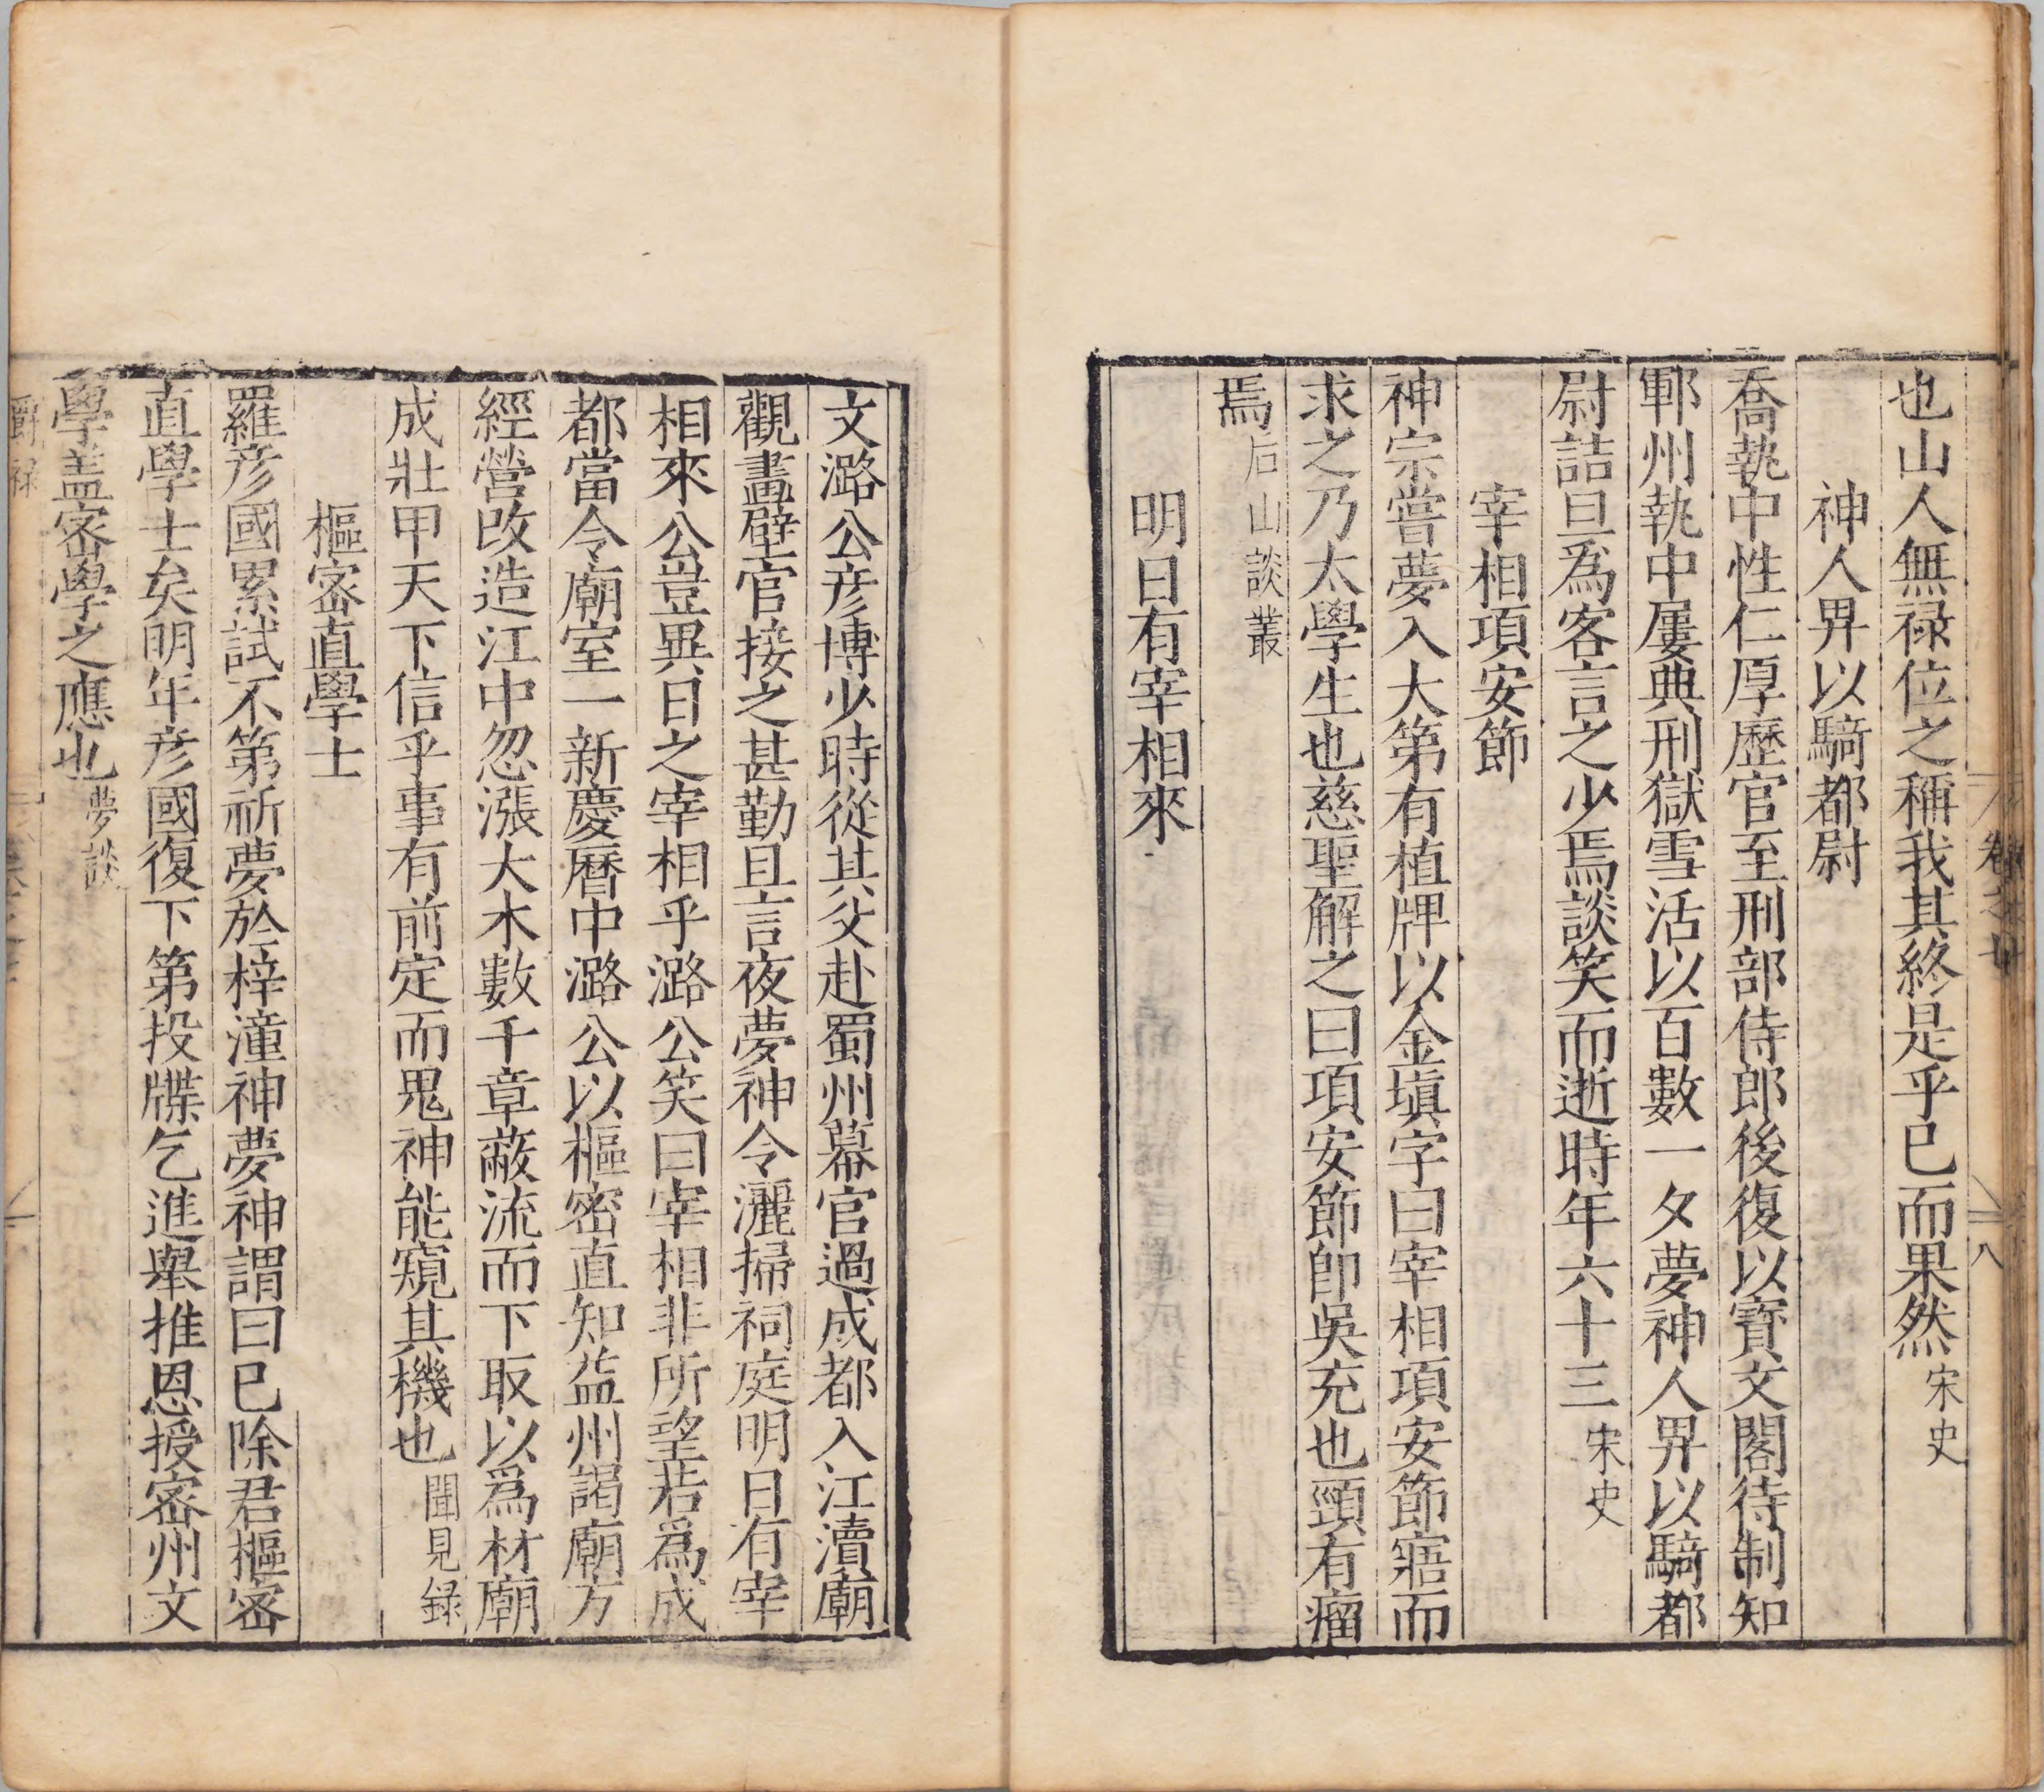 卷之廿
八
也山人無祿位之稱我其終是乎已而果然宋史
神人界以騎都尉
喬執中性仁厚歷官至刑部侍郎後復以寶文閣待制知
鄆州執中屢典刑獄雪活以百數一夕夢神人界以騎都
尉詰旦爲客言之少焉談笑而逝時年六十三宋史
宰相項安節
神宗嘗夢入大第有植牌以金填字曰宰相項安節寤而
求之乃太學生也慈聖解之曰項安節卽吳充也頸有瘤
焉后山談叢
明日有宰相來
文潞公彦博少時從其父赴蜀州幕官過成都入江瀆廟
觀畫壁官接之甚勤且言夜夢神令灑掃祠庭明日有宰
相來公豈異日之宰相乎潞公笑曰宰相非所望若爲成
都當令廟室一新慶曆中潞公以樞密直知益州謁廟方
經營改造江中忽漲大木數千章蔽流而下取以爲材廟
成壯甲天下信乎事有前定而鬼神能窺其機也聞見録
樞密直學士
羅彦國累試不第祈夢於梓潼神夢神謂曰已除君樞密
直學士矣明年彦國復下第投牒乞進舉推恩授密州文
學盖密學之應也夢談
爵祿